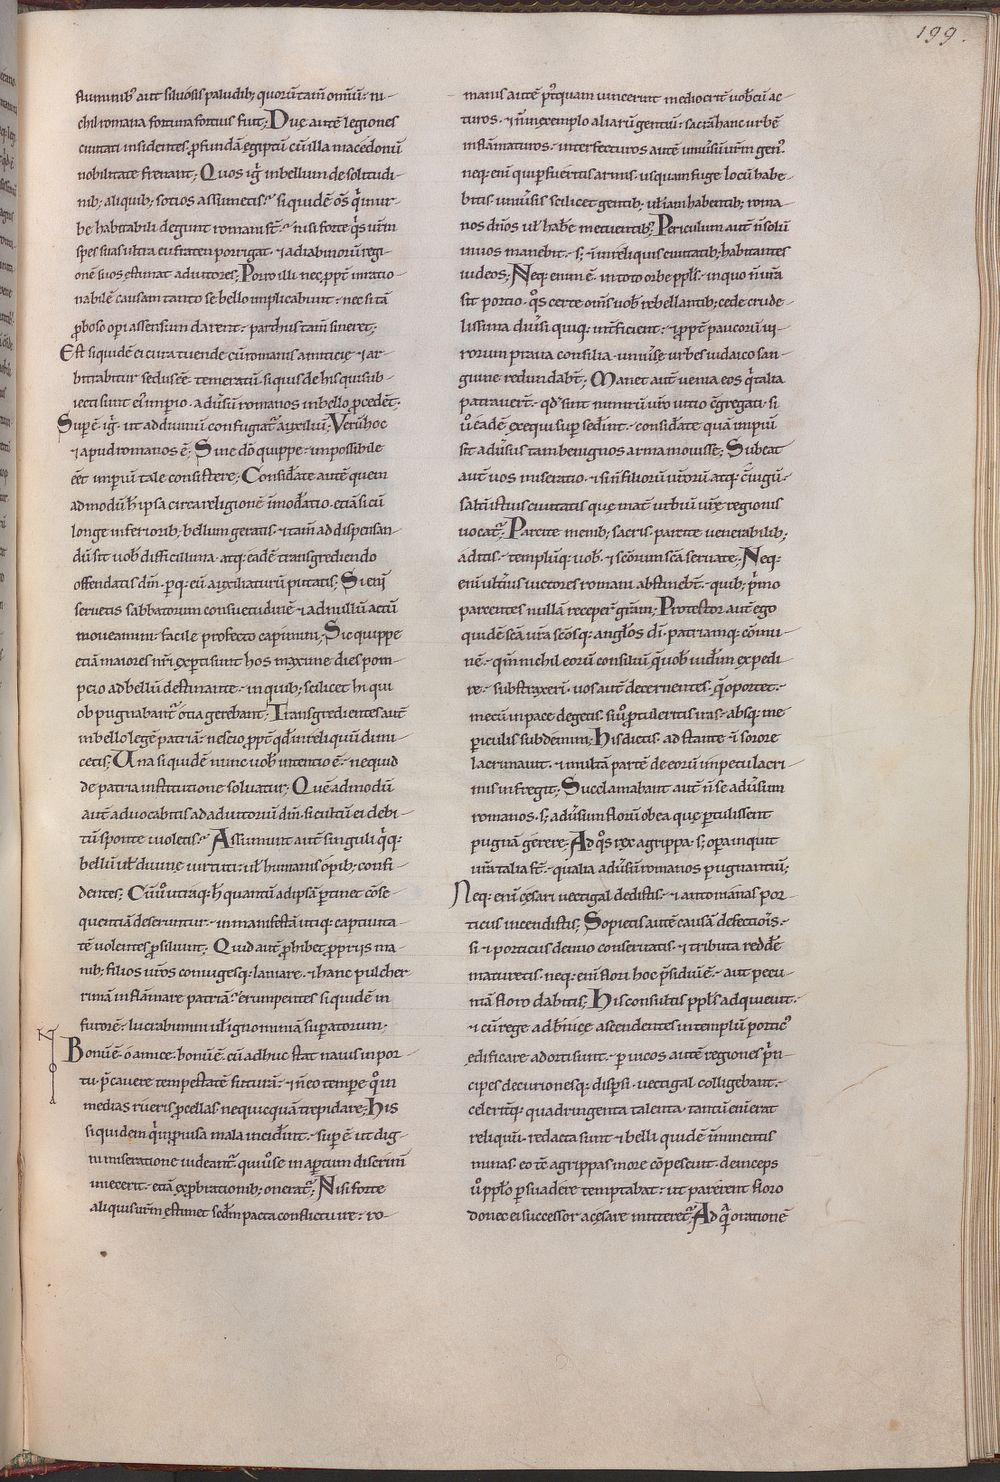 199.
fluminib; aut siluosis paludib; quorū tam̄ omiū· ni-
chil romana fortuna fortius fuit; Due autē legiones
ciuitati insidentes· profundā egiptū cū illa macedonū
nobilitate frenant; Quos igr̄ in bellum de solitudi-
nib; aliquib; sotios assumetis? siquidē om̄s qui in ur-
be habitabili degunt romani st̄· nisi forte q̄s ur̄m
spes suas ultra eufraten porrigat· & adiabinorū regi-
onē suos estimat adiutores; Porro illi nec ppt̄ inratio-
nabilē causam tanto se bello implicabunt· nec si tā
probroso operi assensum darent· parthus tam̄ sineret;
Est siquidē ei cura tuende cū romanis amiticie· & ar-
bitrabitur sedus ēē temeratū si quis de his qui sub-
iecti sunt ei imperio· aduersū romanos in bello procedet;
Supē igr̄ ut ad diuinū confugiatr̄ auxiliū; Verū hoc
& apud romanos ē; Sine dō quippe· impossibile
ēēt imperiū tale consistere; Considerate autē quem
admodū h̄ ipsa circa religionē imoderatio· etiā si cū
longe inferiorib; bellum geratis· & tam̄ ad dispensan-
dū sit uob̄ difficillima· atq; eadē transgrediendo
offendatis dm̄· per q; eū auxiliaturū putatis; Si eni
seruetis sabbatorum consuetudinē & ad nullū actū
moueamini· facile profecto capimini; Sic quippe
etiā maiores nr̄i experti sunt hos maxime dies pom-
peio ad bellū destinante· in quib; scilicet hi qui
obpugnabantr̄ otia gerebant; Transgredientes aut̄
in bello legē patriā· nescio ppt̄ qd̄ in reliquū dimi-
cetis; Una siquidē nunc uob̄ intentio ē· ne quid
de patria institutione soluatur; Quē admodū
aut̄ aduocabitis ad adiutoriū dm̄· si cultū ei debi-
tū sponte uioletis? Assumunt aut̄ singuli q̄q;
bellū ul̄ diuine uirtuti· ul̄ humanis opib; confi-
dentes; Cū u̅o utraq; h̄ quantū ad ipsā pertinet cōse
quentiā deseruntur· in manifestā utiq; captiuita-
tē uolentes prosiliunt; Quid autē prohibet proprijs ma-
nib; filios ur̄os coniugesq; laniare· & hanc pulcher
rimā inflāmare patriā? erumpentes siquidē in
furorē· lucrabimini ul̄ ignominiā superatorum;
Bonū ē o amice· bonū ē· cū adhuc stat nauis in por-
tu· precauere tempestatē futurā· & n̄ eo tempe quo in
medias rueris procellas· nequicquā trepidare; His
siquidem qui inprouisa mala inciderint· superē ut dig-
ni miseratione uideantr̄ qui uo se in apertum discrimī
iniecerit· etiā exprobrationib; oneratr̄; Nisi forte
aliquis ur̄m estimet sedm̄ pacta conflictu ire· ro-
manis autē p̄tquam uincerint mediocrit̄ uob̄cū ac-
turos· & n̄ in exemplo aliarū gentiū· sacrā hanc urbē
inflāmaturos· interfecturos autē uniuersū ur̄m gen;
neq; eni qui superfueritis armis· usquam fuge locū habe
bitis· uniuersis scilicet gentib; ul̄ iam habentib; roma-
nos dn̄os ul̄ habe metuentib; Periculum aut̄ n̄ solū
in uos manebit· s; & in reliquis ciuitatib; habitantes
iudeos; Neq; enim ē· in toto orbe ppl̄s· in quo n̄ ur̄a
sit portio· q̄s certe om̄s uob̄ rebellantib; cede crude-
lissima diuersi quiq; int̄ficient· & ppt̄ paucorū ui-
rorum praua consilia· uniuerse urbes iudaico san-
guine redundabt̄; Manet aut̄ uenia eos qui talia
patrauert̄· qd̄ sint nimirū ur̄o uitio cōgregati· si
u̅o eadē exequi supersedint· considerate quā impiū
sit aduersus tam benignos arma mouisse; Subeat
aut̄ uos miseratio· & si n̄ filiorū ur̄orū atq; cōiugū·
saltī istius ciuitatis que mat̄ urbiū ur̄e regionis
uocatr̄; Parcite menib; sacris· parcite uenerabilib;
aditis· templūq; uob̄· & sc̄orum sc̄a seruate; Neq;
eni ulterius uictores romani abstinebt̄· quib; primo
parcentes nullā receper̄ grām; Protestor aut̄ ego
quidē sc̄a ur̄a sc̄osq; anglos dī· patriamq; cōmu-
nē· qm̄ nichil eorū consiliū que uob̄ uiderim expedi-
re· substraxerī· uos aut̄ decernentes· que oportet·
mecū in pace degetis· siu̅o pertuleritis iras· absq; me
periculis subdemini; His dictis· adstante & sorore
lacrimauit· & multā partē de eorū impetu lacri-
mis infregit; Succlamabant aut̄ n̄ se aduersum
romanos· s; aduersum florū ob ea que pertulissent
pugnā gerere; Ad q̄s rex agrippa· s; opera inquit
ur̄a talia st̄· qualia aduersū romanos pugnantiū;
Neq; eni cesari uectigal dedistis· & antonianas por-
ticus incendistis; Sopietis autē causā defectiōis·
si & porticus denuo conseruatis· & tributa reddere
maturetis· neq; eni flori hoc presidiū ē· aut pecu-
niā floro dabitis; His consultis ppl̄s adquieuit·
& cū rege ad bernice ascendentes in templū portic;
edificare adorti sunt· per uicos autē regiones prin-
cipes decurionesq; dispersi· uectigal colligebant·
celeritq; quadringenta talenta· tantū eni erat
reliquū· redacta sunt· & belli quidē imminentis
minas· eo te agrippas more cōpescuit· deinceps
u̅o ppl̄o persuadere temptabat· ut parerent floro
donec ei successor a cesare mitteretr̄; Ad quā orationē